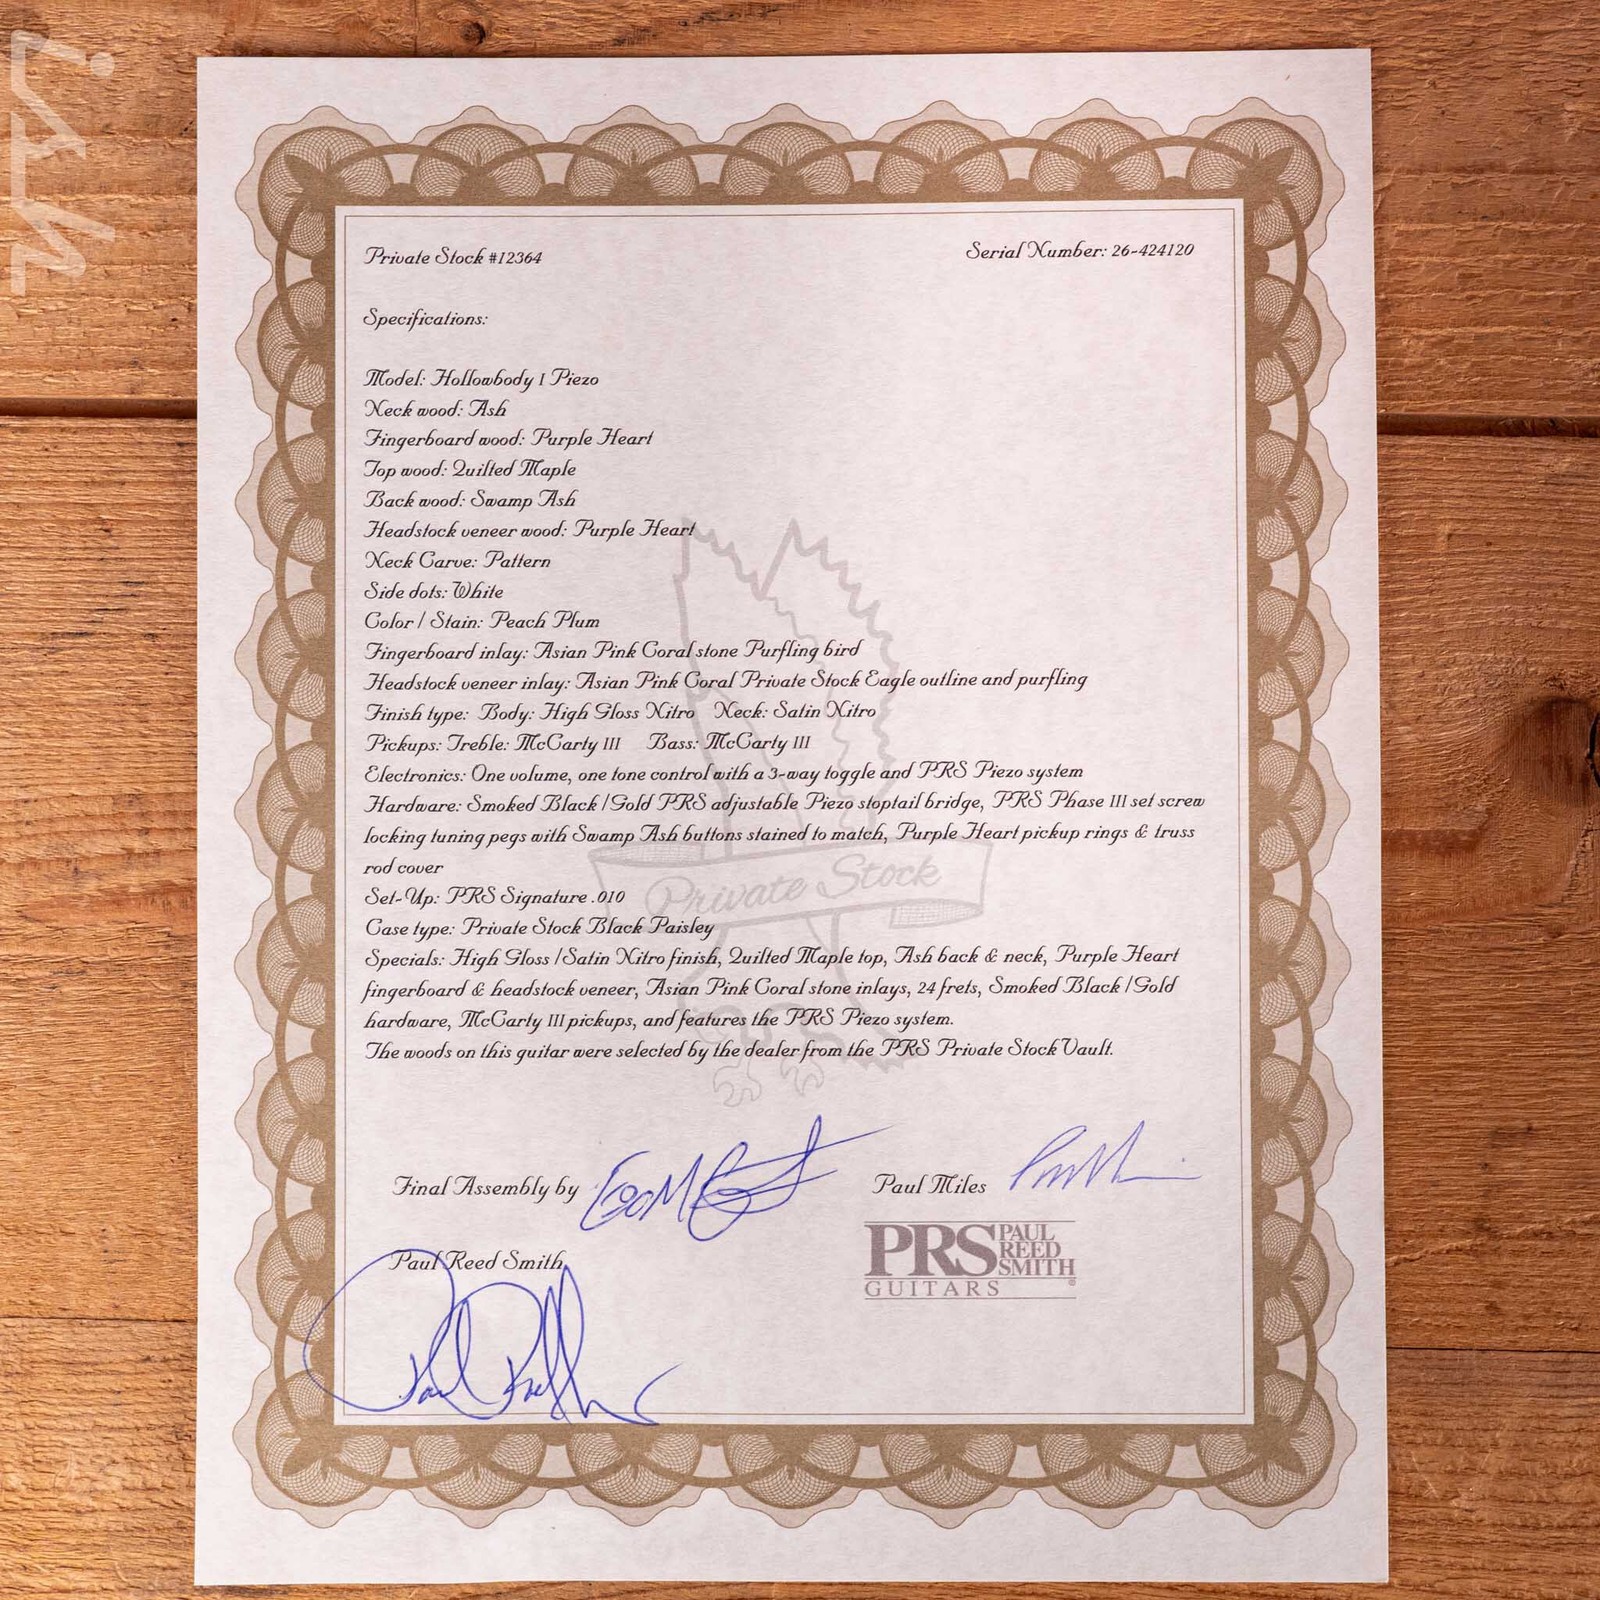 Private Stock #12364
Serial Number: 26-424120
Specifications:
Model: Hollowbody I Piezo
Neck wood: Ash
Fingerboard wood: Purple Heart
Top wood: Quilted Maple
Back wood: Swamp Ash
Headstock veneer wood: Purple Heart
Neck Carve: Pattern
Side dots: White
Color / Stain: Peach Plum
Fingerboard inlay: Asian Pink Coral stone Purfling bird
Headstock veneer inlay: Asian Pink Coral Private Stock Eagle outline and purfling
Finish type: Body: High Gloss Nitro Neck: Satin Nitro
Pickups: Treble: McCarty III Bass: McCarty III
Electronics: One volume, one tone control with a 3-way toggle and PRS Piezo system
Hardware: Smoked Black / Gold PRS adjustable Piezo stoptail bridge, PRS Phase III set screw
locking tuning pegs with Swamp Ash buttons stained to match, Purple Heart pickup rings & truss
rod cover
Private Stock
Set-Up: PRS Signature .010
Case type: Private Stock Black Paisley
Specials: High Gloss / Satin Nitro finish, Quilted Maple top, Ash back & neck, Purple Heart
fingerboard & headstock veneer, Asian Pink Coral stone inlays, 24 frets, Smoked Black / Gold
hardware, McCarty III pickups, and features the PRS Piezo system.
The woods on this guitar were selected by the dealer from the PRS Private Stock Vault.
Final Assembly by
Paul Miles
Paul Reed Smith
PRS PAUL REED SMITH
GUITARS